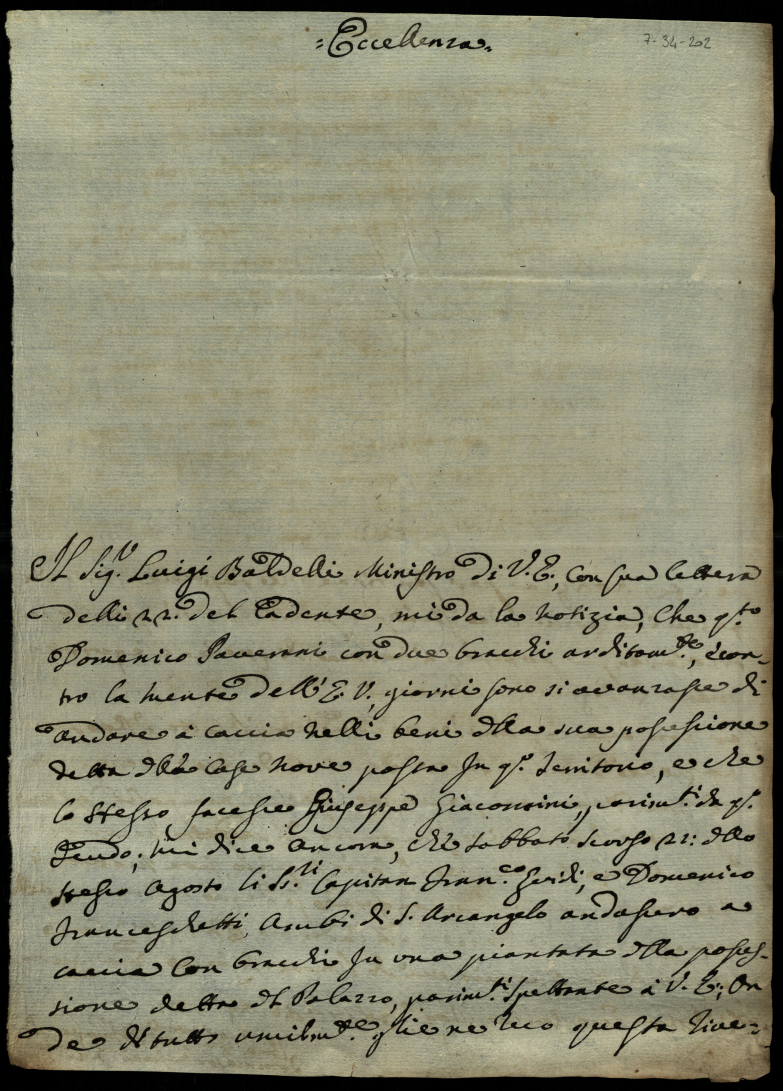 =Eccellenza=
7-34-202
Il Sig.r Luigi Baldelli Ministro di V. E., con sua lettera
delli 22. del Cadente, mi da la notizia, che q.to
Domenico Paverani con due bracchi arditam.te, e con-
tro la mente dell'E. V., giorni sono si avanzasse di
andare à caccia nelli beni dlla sua possessione
detta dlle Case nove posta in q.to Territorio, e che
lo stesso facesse Giuseppe Giacomini, parim.ti di q.to
Feudo; mi dice ancora, che sabbato scorso 22: dllo
stesso Agosto li SS.ri Capitan Fran.co, e Domenico
Franceschetti, Ambi di S. Arcangelo andassero a
caccia con bracchi in una piantata dlla posses-
sione detta dl Palazzo, parim.ti spettante à V. E.; On
de di tutto umilm.te gliene reco questa rive=